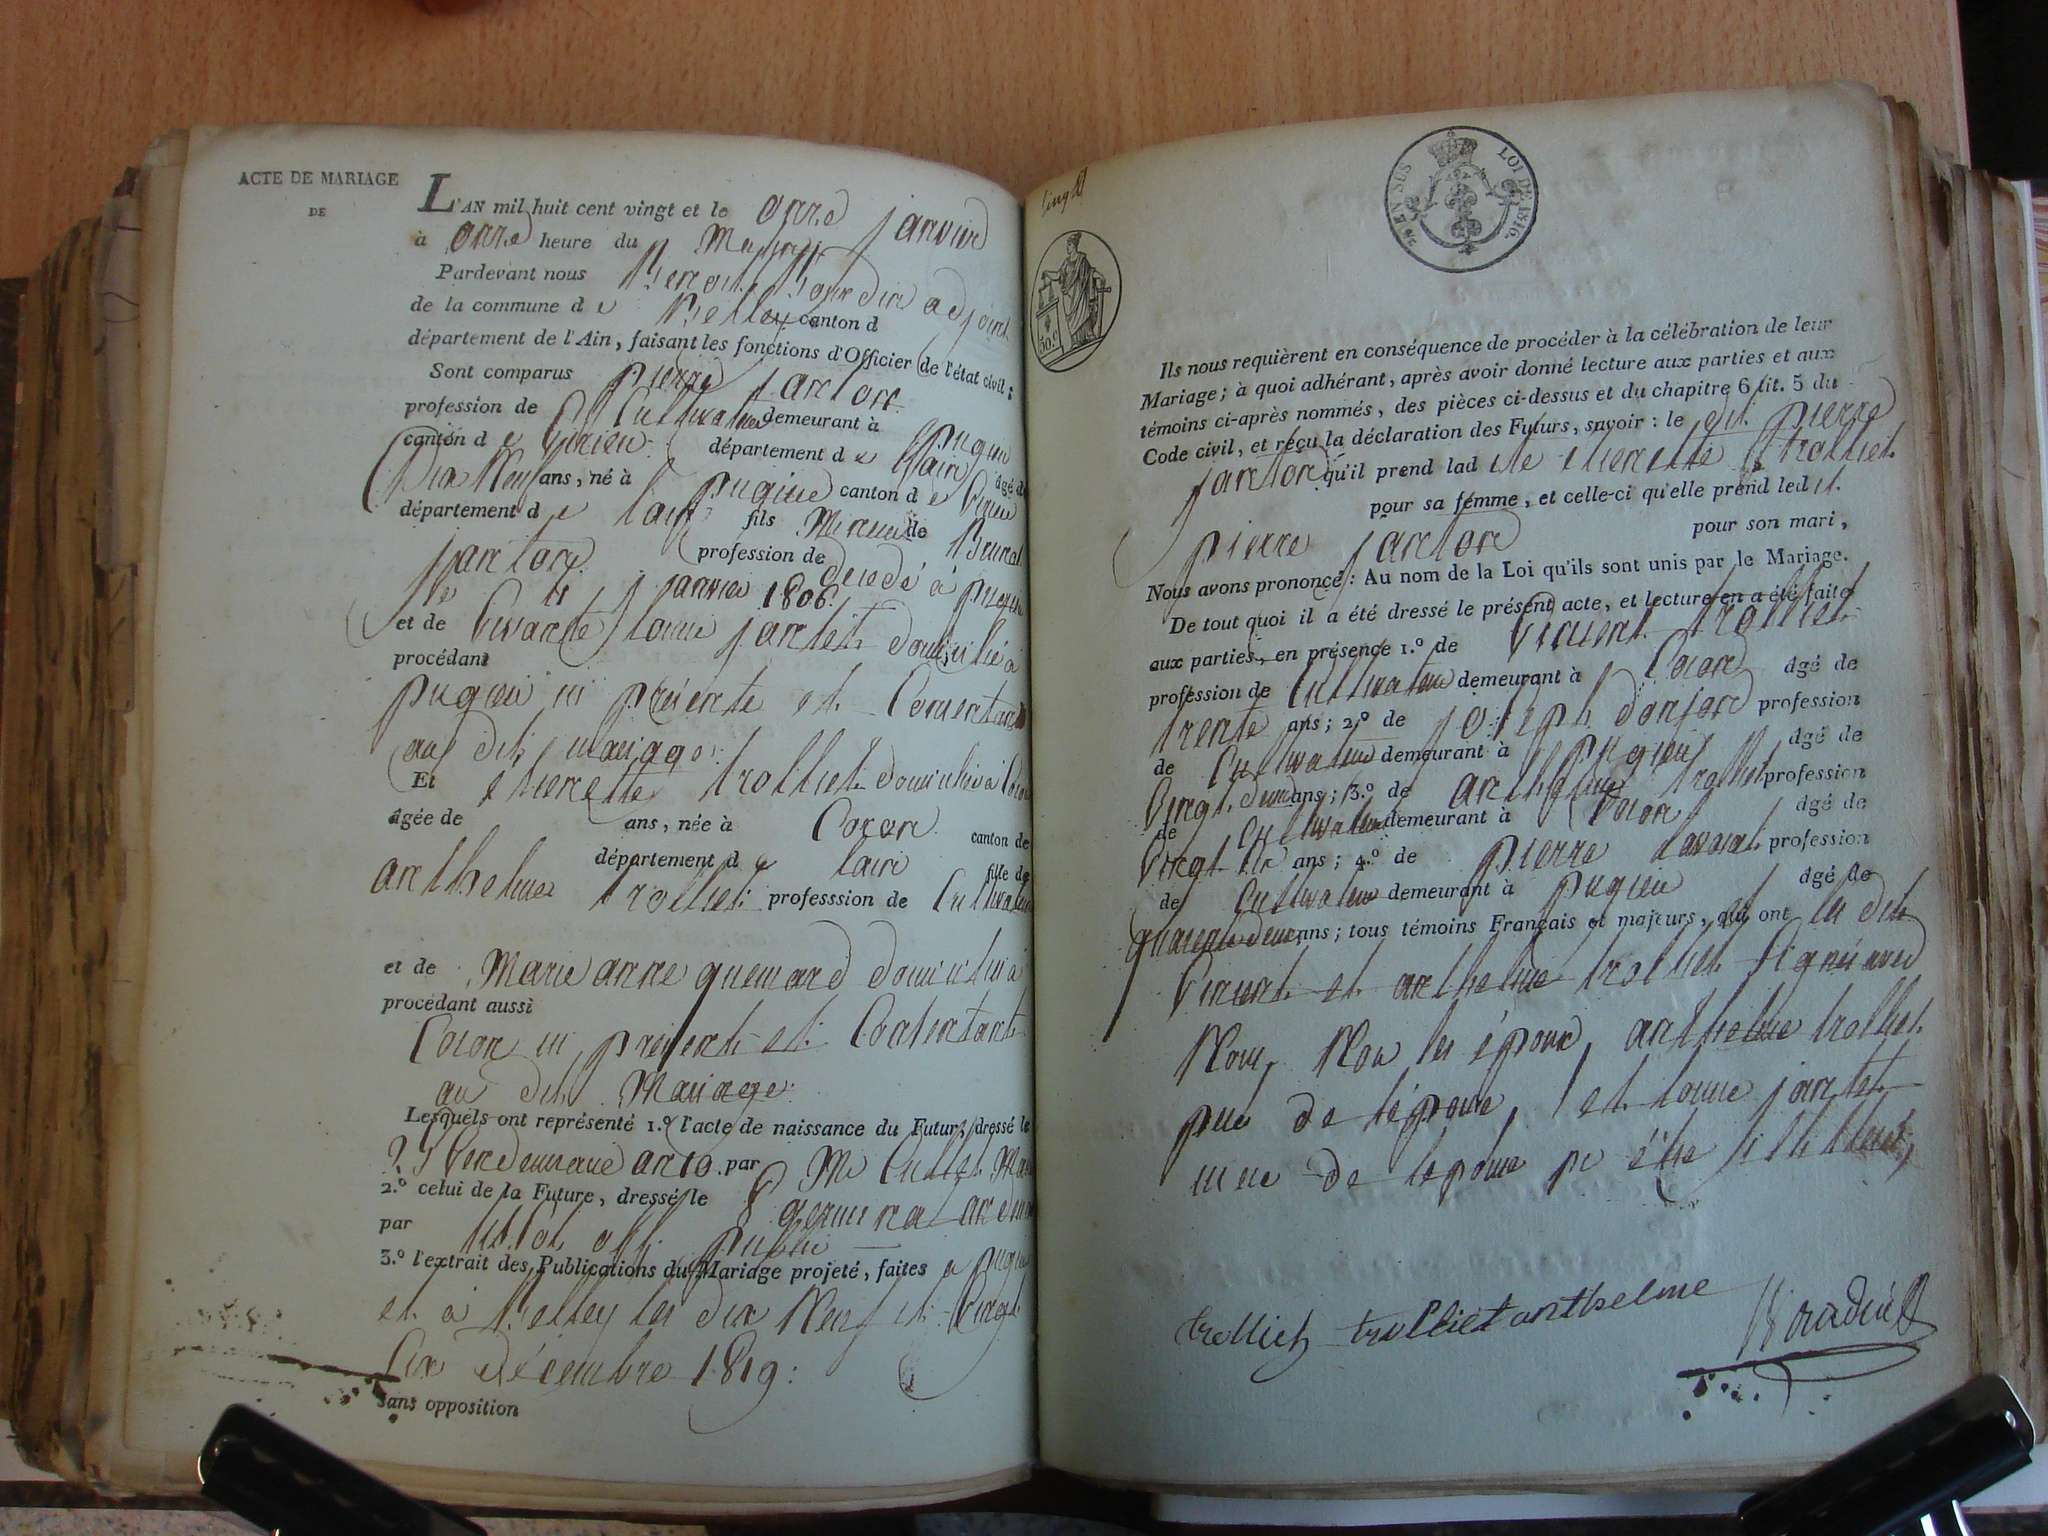 ACTE DE MARIAGE
DE
L'AN mil huit cent vingt et le onze janvier
à onze heure du Matin
Pardevant nous Benoit Bourdin adjoint
de la commune de Belley canton d
département de l'Ain, faisant les fonctions d'Officier de l'état civil;
Sont comparus pierre janton
profession de Cultivateur demeurant à pugieu
canton de Virieu département de lain âgé de
Dix Neuf ans, né à pugieu canton de Virieu
département de lain fils Mineur de Benoit
janton profession de décédé à pugieu
le 4 janvier 1806
et de Vivante louise jantet domiciliée à
procédant
pugieu ici présente et Consentante
au dit mariage
Et etienette trolliet domiciliée à Coron
âgée de ans, née à Coron canton de
département de lain fille de
anthelme trolliet professsion de Cultivateur
et de Marie anne quemard domiciliés à
procédant aussi
Coron ici présents et Consentants
au dit Mariage
Lesquels ont représenté 1.º l'acte de naissance du Futur, dressé le
Vendemiaire an 10 par Mr Cullet Maire
2.º celui de la Future, dressé le 8 germinal an
par off. public
3.º l'extrait des Publications du Mariage projeté, faites à pugieu
et à Belley les dix Neuf et Vingt
Six décembre 1819:
Sans opposition
LOI DE 1816.
30.c
Ils nous requièrent en conséquence de procéder à la célébration de leur
Mariage; à quoi adhérant, après avoir donné lecture aux parties et aux
témoins ci-après nommés, des pièces ci-dessus et du chapitre 6 tit. 5 du
Code civil, et reçu la déclaration des Futurs, savoir: le dit pierre
janton qu'il prend lad ite etienette trolliet
pour sa femme, et celle-ci qu'elle prend led it
pierre janton pour son mari,
Nous avons prononcé: Au nom de la Loi qu'ils sont unis par le Mariage.
De tout quoi il a été dressé le présent acte, et lecture en a été faite
aux parties, en présence 1.º de Vincent trolliet
profession de Cultivateur demeurant à Coron âgé de
trente ans; 2.º de joseph donjon profession
de Cultivateur demeurant à pugieu âgé de
Vingt deux ans; 3.º de anthelme trolliet profession
de Cultivateur demeurant à Coron âgé de
Vingt six ans; 4.º de pierre profession
de Cultivateur demeurant à pugieu âgé de
quarante deux ans; tous témoins Français et majeurs, qui ont les dits
Vincent et anthelme trolliet signés avec
Nous, Non les époux, anthelme trolliet
père de lépouse, et louise jantet
mere de lepoux p être illitterés,
trolliet trolliet anthelme Bourdin